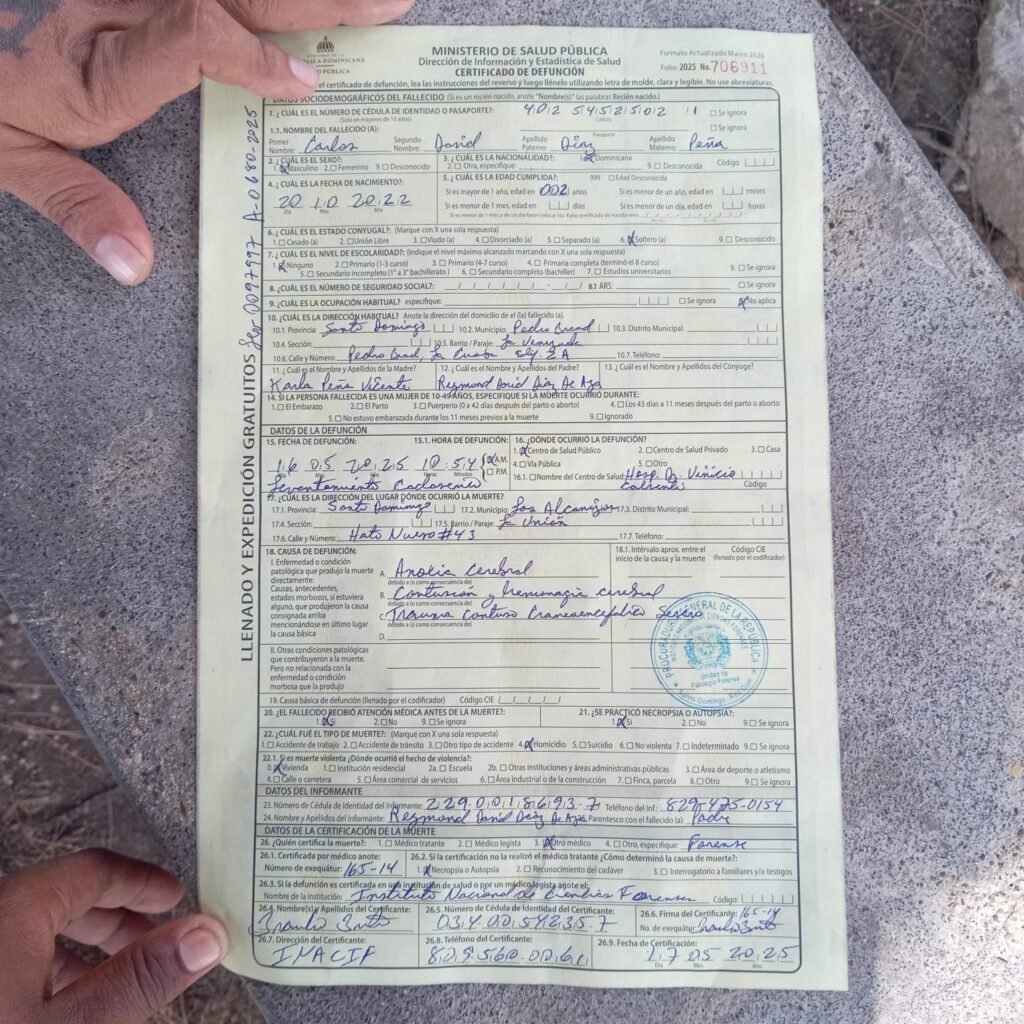 REPÚBLICA DOMINICANA
MINISTERIO DE SALUD PÚBLICA
Dirección de Información y Estadística de Salud
CERTIFICADO DE DEFUNCIÓN
Formato Actualizado Marzo 2020
Folio: 2025 No. 706911
el certificado de defunción, lea las instrucciones del reverso y luego llénelo utilizando letra de molde, clara y legible. No use abreviaturas
DATOS SOCIODEMOGRÁFICOS DEL FALLECIDO (Si es un recién nacido, anote "Nombre(s)" las palabras Recién nacido.)
1. ¿CUÁL ES EL NÚMERO DE CÉDULA DE IDENTIDAD O PASAPORTE? 402 5452502 1 Se ignora
(Solo en mayores de 15 años) Cédula
Pasaporte Se ignora
1.1. NOMBRE DEL FALLECIDO (A):
Primer Nombre: Carlos Segundo Nombre: David Apellido Paterno: Díaz Apellido Materno: Peña
2. ¿CUÁL ES EL SEXO? 1. X Masculino 2. Femenino 9. Desconocido
3. ¿CUÁL ES LA NACIONALIDAD? 1. X Dominicana
2. Otra, especifique: 9. Desconocida Código
4. ¿CUÁL ES LA FECHA DE NACIMIENTO?:
20 10 2022
Día Mes Año
5. ¿CUÁL ES LA EDAD CUMPLIDA? 999 Edad Desconocida
Si es mayor de 1 año, edad en 002 años Si es menor de un año, edad en meses
Si es menor de 1 mes, edad en días Si es menor de un día, edad en horas
6. ¿CUÁL ES EL ESTADO CONYUGAL? (Marque con X una sola respuesta)
1. Casado (a) 2. Unión Libre 3. Viudo (a) 4. Divorciado (a) 5. Separado (a) 6. X Soltero (a) 9. Desconocido
7. ¿CUÁL ES EL NIVEL DE ESCOLARIDAD? (Indique el nivel máximo alcanzado marcando con X una sola respuesta)
1. X Ninguno 2. Primario (1-3 curso) 3. Primario (4-7 curso) 4. Primaria completa (terminó el 8 curso)
5. Secundario incompleto (1° a 3° bachillerato) 6. Secundario completo (bachiller) 7. Estudios universitarios 9. Se ignora
8. ¿CUÁL ES EL NÚMERO DE SEGURIDAD SOCIAL?: 8.1 ARS: Se ignora
9. ¿CUÁL ES LA OCUPACIÓN HABITUAL? especifique: Se ignora X No aplica
10. ¿CUÁL ES LA DIRECCIÓN HABITUAL? Anote la dirección del domicilio de el (la) fallecido (a).
10.1. Provincia: Santo Domingo 10.2. Municipio: Pedro Brand 10.3. Distrito Municipal:
10.4. Sección: 10.5. Barrio / Paraje: La Venezuela
10.6. Calle y Número: Pedro Brad, La Cuaba 2 A 10.7. Teléfono:
11. ¿Cuál es el Nombre y Apellidos de la Madre? 12. ¿Cuál es el Nombre y Apellidos del Padre? 13. ¿Cuál es el Nombre y Apellidos del Cónyuge?
Karla Peña Vicente Reymond David Díaz De Aza
14. SI LA PERSONA FALLECIDA ES UNA MUJER DE 10-49 AÑOS, ESPECIFIQUE SI LA MUERTE OCURRIÓ DURANTE:
1. El Embarazo 2. El Parto 3. Puerperio (0 a 42 días después del parto o aborto) 4. Los 43 días a 11 meses después del parto o aborto
5. No estuvo embarazada durante los 11 meses previos a la muerte 9. Ignorado
DATOS DE LA DEFUNCIÓN
15. FECHA DE DEFUNCIÓN: 15.1. HORA DE DEFUNCIÓN:
16 05 2025 10:54 X A.M. P.M.
Día Mes Año Horas Minutos
Levantamiento Cadaverico
16. ¿DÓNDE OCURRIÓ LA DEFUNCIÓN?
1. X Centro de Salud Público 2. Centro de Salud Privado 3. Casa
4. Vía Pública 5. Otro
16.1. Nombre del Centro de Salud: Hosp. Dr. Vinicio Calventi Código
17. ¿CUÁL ES LA DIRECCIÓN DEL LUGAR DÓNDE OCURRIÓ LA MUERTE?
17.1. Provincia: Santo Domingo 17.2. Municipio: Los Alcarrizos 17.3. Distrito Municipal:
17.4. Sección: 17.5. Barrio / Paraje: La Unión
17.6. Calle y Número: Hato Nuevo #43 17.7. Teléfono:
18. CAUSA DE DEFUNCIÓN:
I. Enfermedad o condición patológica que produjo la muerte directamente:
Causas, antecedentes, estados morbosos, si estuviera alguno, que produjeron la causa consignada arriba mencionándose en último lugar la causa básica
18.1. Intérvalo aprox. entre el inicio de la causa y la muerte
Código CIE (llenado por el codificador)
A. Anoxia cerebral
debido a (o como consecuencia de)
B. Contusión y hemorragia cerebral
debido a (o como consecuencia de)
C. Trauma Contuso Craneoencefalico Severo
debido a (o como consecuencia de)
D.
II. Otras condiciones patológicas que contribuyeron a la muerte. Pero no relacionada con la enfermedad o condición morbosa que la produjo
PROCURADURÍA GENERAL DE LA REPÚBLICA
INSTITUTO NACIONAL DE CIENCIAS FORENSES
Unidad de Patología Forense
Santo Domingo, Rep. Dom.
19. Causa básica de defunción (llenado por el codificador) Código CIE
20. ¿EL FALLECIDO RECIBIÓ ATENCIÓN MÉDICA ANTES DE LA MUERTE?: 1. X Si 2. No 9. Se ignora
21. ¿SE PRACTICÓ NECROPSIA O AUTOPSIA?: 1. X Si 2. No 9. Se ignora
22. ¿CUÁL FUÉ EL TIPO DE MUERTE?: (Marque con X una sola respuesta)
1. Accidente de trabajo 2. Accidente de tránsito 3. Otro tipo de accidente 4. X Homicidio 5. Suicidio 6. No violenta 7. Indeterminado 9. Se ignora
22.1. Si es muerte violenta ¿Dónde ocurrió el hecho de violencia?:
0. X Vivienda 1. Institución residencial 2a. Escuela 2b. Otras instituciones y áreas administrativas públicas 3. Área de deporte o atletismo
4. Calle o carretera 5. Área comercial de servicios 6. Área industrial o de la construcción 7. Finca, parcela 8. Otro 9. Se ignora
DATOS DEL INFORMANTE
23. Número de Cédula de Identidad del Informante: 229.0018693-7 Teléfono del Inf.: 829-475-0154
24. Nombre y Apellidos del informante: Reymond David Díaz De Aza Parentesco con el fallecido (a): Padre
DATOS DE LA CERTIFICACIÓN DE LA MUERTE
26. ¿Quién certifica la muerte?: 1. Médico tratante 2. Médico legista 3. X Otro médico 4. Otro, especifique: Forense
26.1. Certificada por médico anote:
Número de exequátur: 165-14
26.2. Si la certificación no la realizó el médico tratante ¿Cómo determinó la causa de muerte?:
1. X Necropsia o Autopsia 2. Reconocimiento del cadáver 3. Interrogatorio a familiares y/o testigos
26.3. Si la defunción es certificada en una institución de salud o por un médico legista anote el:
Nombre de la institución: Instituto Nacional de Ciencias Forenses Código:
26.4. Nombre(s) y Apellidos del Certificante: Brito
26.5. Número de Cédula de Identidad del Certificante: 034-0054235-7
26.6. Firma del Certificante: 165-14
No. de exequátur: Brito
26.7. Dirección del Certificante: INACIF
26.8. Teléfono del Certificante: 809.560.0061
26.9. Fecha de Certificación: 17 05 2025
Día Mes Año
LLENADO Y EXPEDICIÓN GRATUITOS
0097997 A-0680-2225